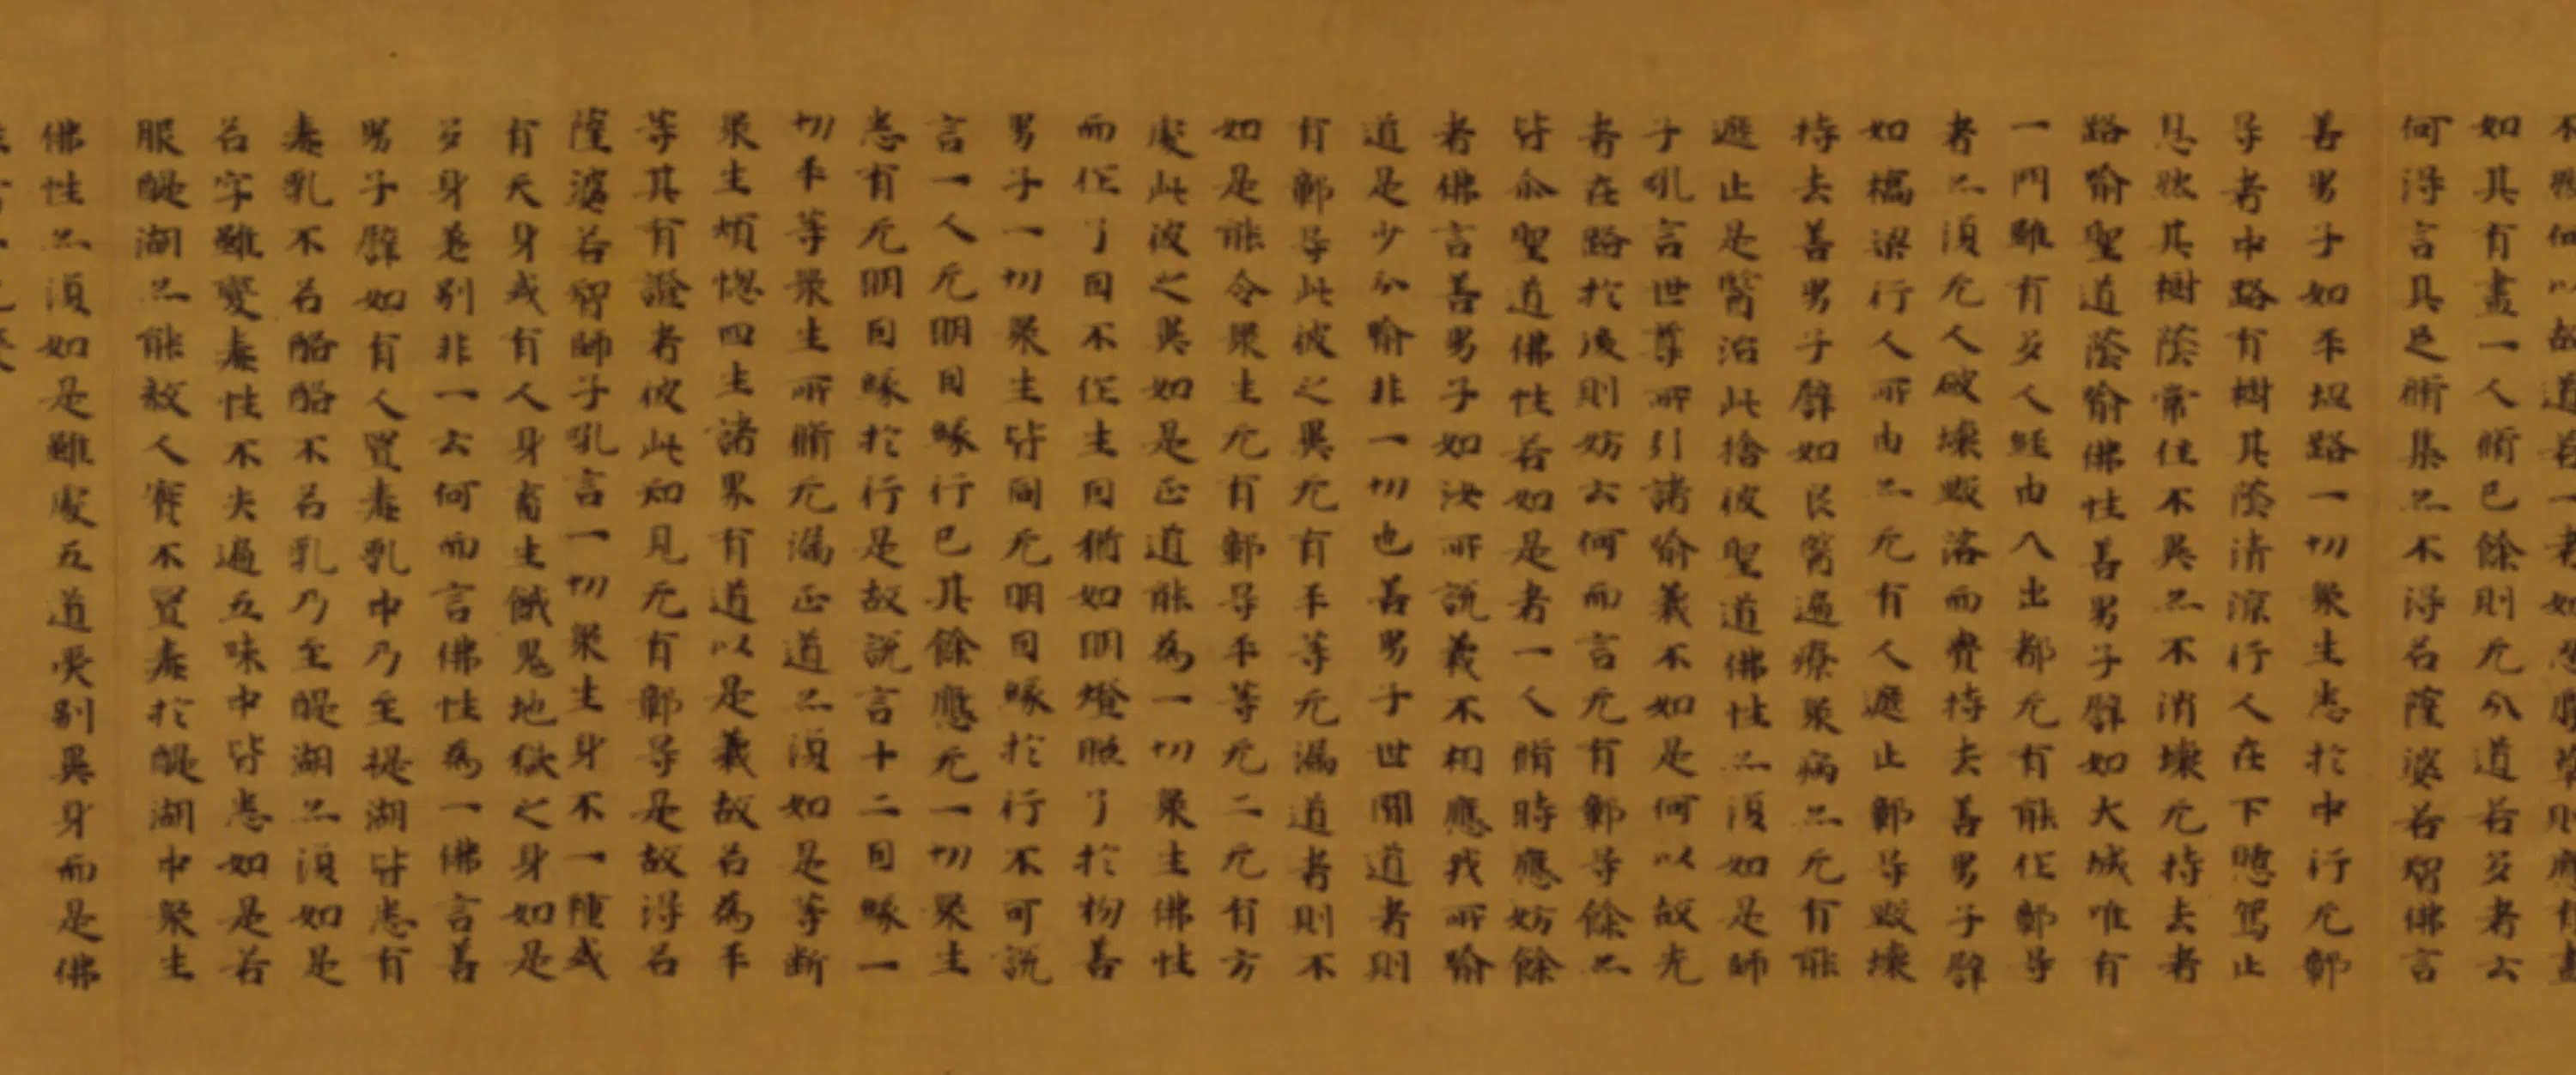 故道若一者如
如其有盡一人脩已餘則无分道若多者云
何得言具足脩集亦不得名薩婆若智佛言
善男子如平坦路一切衆生悉於中行无鄣
㝵者中路有樹其蔭清涼行人在下憩駕止
息然其樹蔭常住不異亦不消壞无持去者
路喻聖道蔭喻佛性善男子譬如大城唯有
一門雖有多人經由入出都无有能作鄣㝵
者亦復无人破壞毀落而賷持去善男子譬
如橋梁行人所由亦无有人遮止鄣㝵毀壞
持去善男子譬如良醫遍療衆病亦无有能
遮止是醫治此捨彼聖道佛性亦復如是師
子吼言世尊所引諸喻義不如是何以故先
者在路於後則妨云何而言无有鄣㝵餘亦
皆尒聖道佛性若如是者一人脩時應妨餘
者佛言善男子如汝所說義不相應我所喻
道是少分喻非一切也善男子世間道者則
有鄣㝵此彼之異无有平等无漏道者則不
如是能令衆生无有鄣㝵平等无二无有方
處此彼之異如是正道能為一切衆生佛性
而作了因不作生因猶如明燈照了於物善
男子一切衆生皆同无明因緣於行不可說
言一人无明因緣行已其餘應无一切衆生
悉有无明因緣於行是故說言十二因緣一
切平等衆生所脩无漏正道亦復如是等斷
衆生煩惱四生諸界有道以是義故名為平
等其有證者彼此知見无有鄣㝵是故得名
薩婆若智師子吼言一切衆生身不一種或
有天身或有人身畜生餓鬼地獄之身如是
多身差別非一云何而言佛性為一佛言善
男子譬如有人置毒乳中乃至提湖皆悉有
毒乳不名酪酪不名乳乃至醍湖亦復如是
名字雖變毒性不失遍五味中皆悉如是若
服醍湖亦能殺人實不置毒於醍湖中衆生
佛性亦復如是雖處五道受別異身而是佛